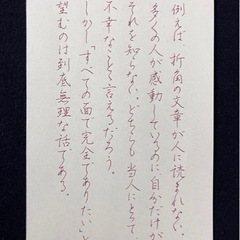 例えば、折角の文章が人に読まれない。
多くの人が感動しているのに、自分だけが
それを知らない。どちらも当人にとって
不幸なことと言えるだろう。
しかし「すべての面で完全でありたい」と
望むのは到底無理な話である。